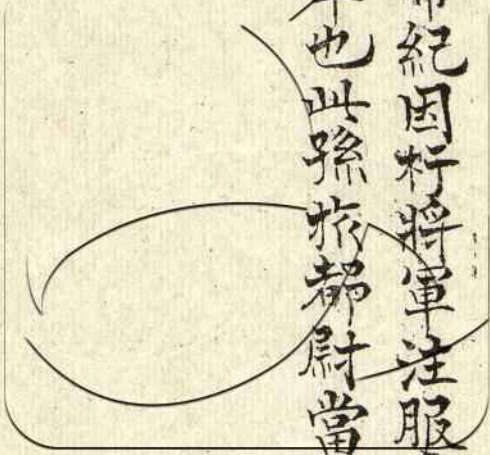 帝紀因杅將軍注服
也此孫於都尉當